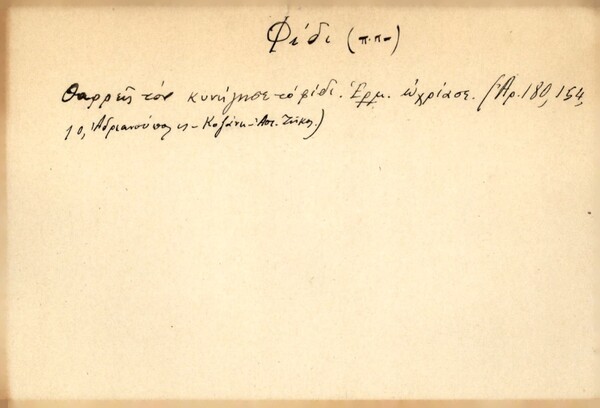 Φίδι (π.π-)
Θαρρεῖς τὸν κυνήγησε τὸ φίδι. Ἑρμ. ὠχρίασε. (Ἀρ. 180, 154,
10, Ἀδριανούπολις - Κοζάνη -